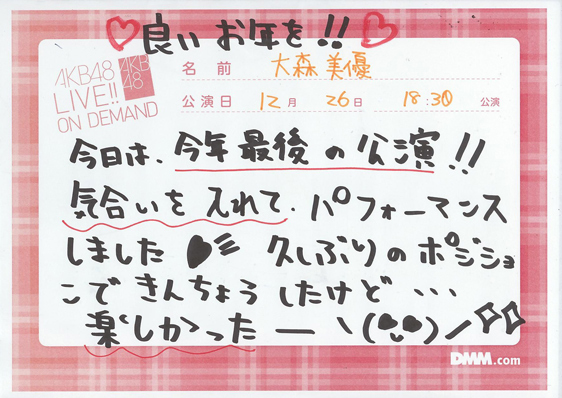 ♡良いお年を!!♡
AKB48
LIVE!!
ON DEMAND
AKB
48
名前 大森美優
公演日 12月 26日 18:30 公演
今日は、今年最後の公演!!
気合いを入れて、パフォーマンス
しました♥ 久しぶりのポジショ
こできんちょうしたけど...
楽しかったーヽ(♥‿♥)ノ✧✧
DMM.com